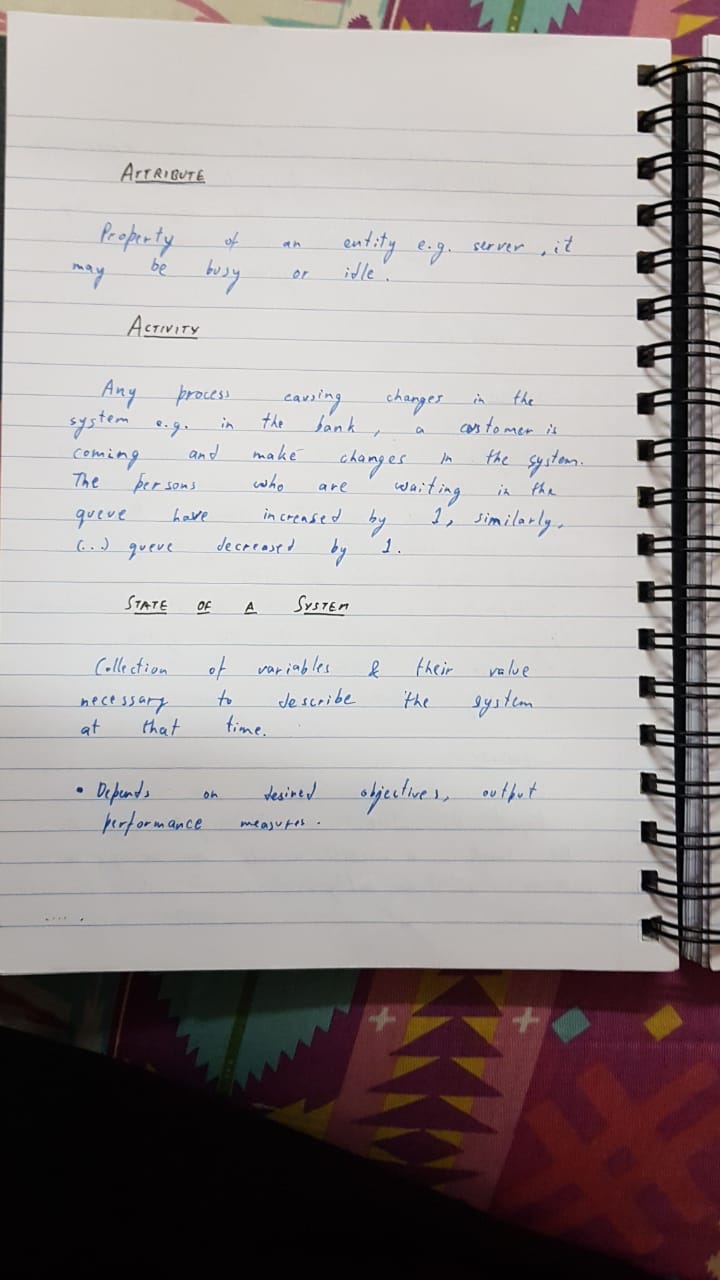 ATTRIBUTE
Property of an entity e.g. server, it
may be busy or idle.
ACTIVITY
Any process causing changes in the
system e.g. in the bank, a customer is
coming and make changes in the system.
The persons who are waiting in the
queue have increased by 1, similarly,
(...) queue decreased by 1.
STATE OF A SYSTEM
Collection of variables & their value
necessary to describe the system
at that time.
• Depends on desired objectives, output
performance measures.